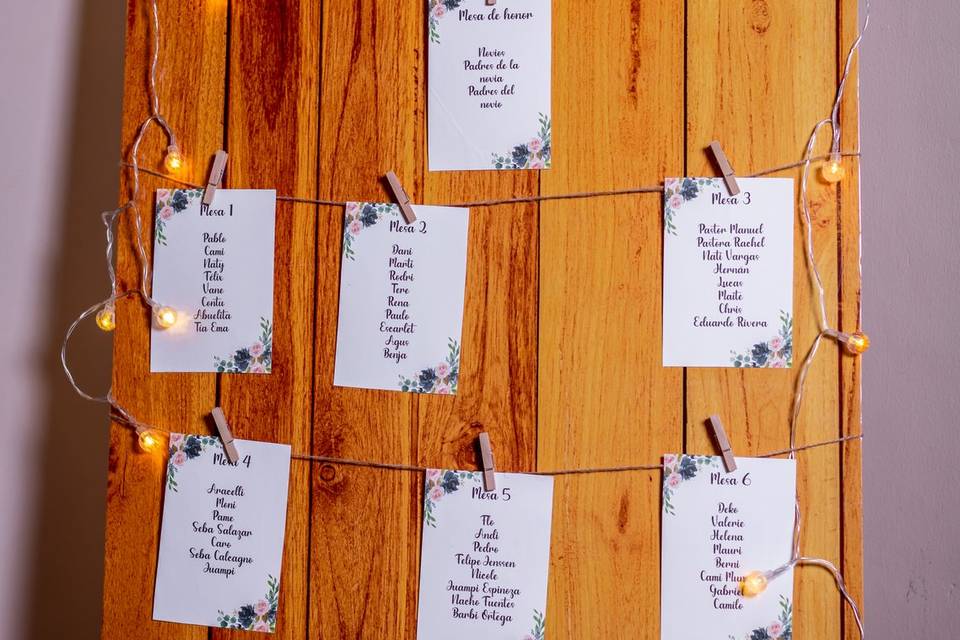 Mesa de honor
Novios
Padres de la
novia
Padres del
novio
Mesa 1
Pablo
Cami
Naty
Felix
Vane
Contu
Abuelita
Tia Ema
Mesa 2
Dani
Marti
Rodri
Tere
Rena
Paulo
Escarlet
Agus
Benja
Mesa 3
Pastor Manuel
Pastora Rachel
Nati Vargas
Hernán
Lucas
Maite
Chris
Eduardo Rivera
Mesa 4
Aracelli
Moni
Pame
Seba Salazar
Caro
Seba Calcagno
Juampi
Mesa 5
Flo
Andi
Pedro
Felipe Jenssen
Nicole
Juampi Espinoza
Nacho Fuentes
Barbi Ortega
Mesa 6
Deko
Valerie
Helena
Mauri
Berni
Cami
Camilo